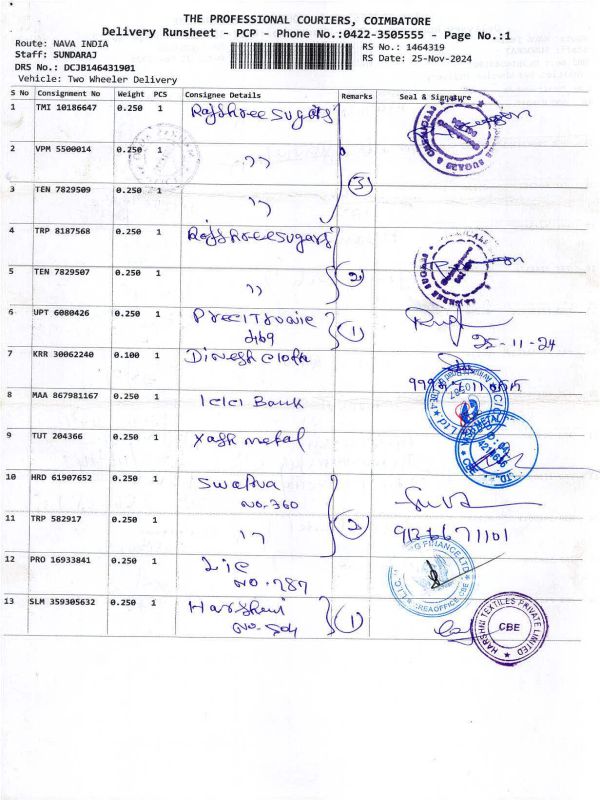 THE PROFESSIONAL COURIERS, COIMBATORE
Delivery Runsheet - PCP - Phone No.:0422-3505555 - Page No.:1
Route: NAVA INDIA
RS No.: 1464319
Staff: SUNDARAJ
RS Date: 25-Nov-2024
DRS No.: DCJB146431901
Vehicle: Two Wheeler Delivery
S No Consignment No Weight PCS Consignee Details Remarks Seal & Signature
1 TMI 10186647 0.250 1 Rajshree sugars
2 VPM 5500014 0.250 1 ,,
3 TEN 7829509 0.250 1 ,, 3
4 TRP 8187568 0.250 1 Rajshree sugars
5 TEN 7829507 0.250 1 ,, 2
6 UPT 6080426 0.250 1 1
469 25-11-24
7 KRR 30062240 0.100 1 Dinesh cloth
8 MAA 867981167 0.250 1 ICICI Bank
9 TUT 204366 0.250 1 Yash metal
10 HRD 61907652 0.250 1
NO-360
11 TRP 582917 0.250 1 ,, 2
12 PRO 16933841 0.250 1 Lic
NO.787
13 SLM 359305632 0.250 1 Harshni
NO-504 1
HARSHNI TEXTILES PRIVATE LIMITED
CBE